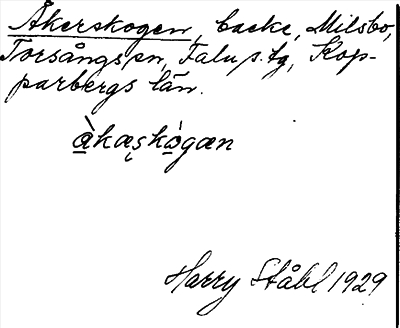 Åkerskogen, backe, Milsbo,
Torsångs sn, Falu s. tg, Kop-
parbergs län.
àkæskògæn
Harry Ståhl 1929